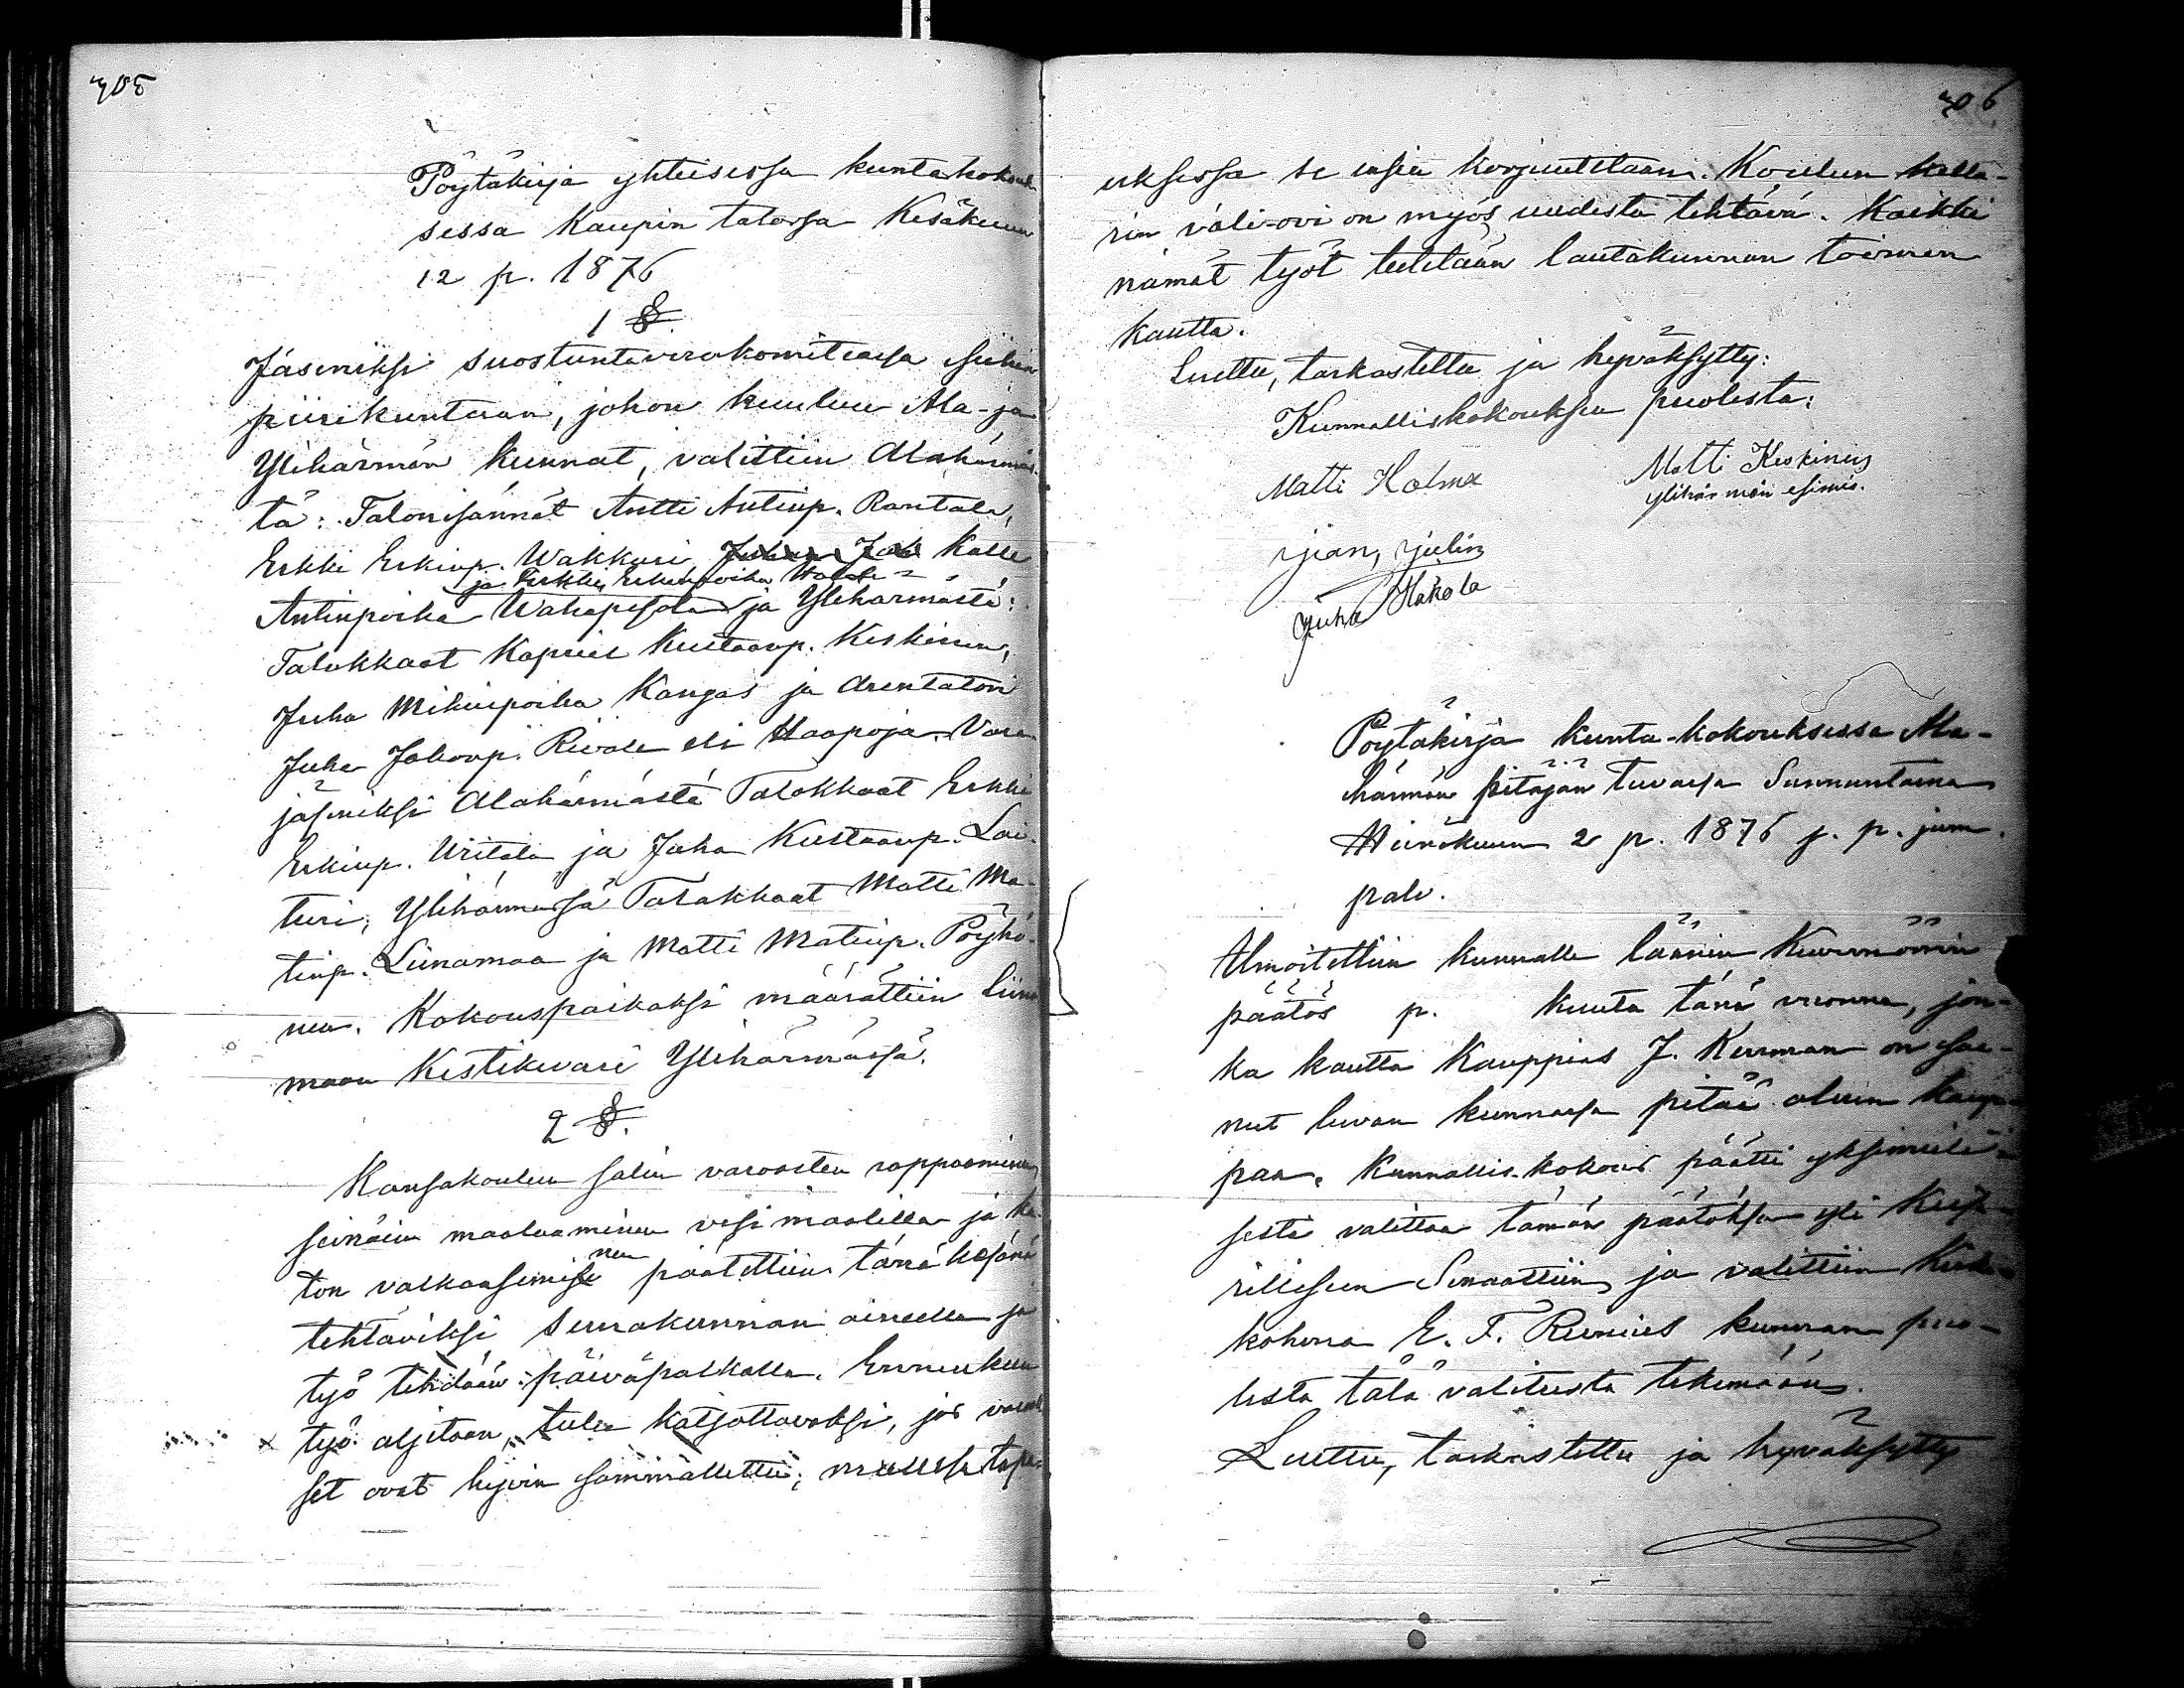 305
Pöytäkirja yhteisessä kuntakokouk
sessa Kaupin talossa Kesäkuun
12 p. 1876
1 §.
Jäseniksi suostuntaverokomiteassa siihen
piirikuntaan, johon kuuluu Ala- ja
Ylihärmän kunnat, valittiin Alahärmäs-
tä: Talonisännät Antti Antinp. Rantala,
Erkki Erkinp. Wakkuri Kalle
ja Erkki Erkinpoika
Antinpoika Wahapesola ja Ylihärmästä:
Talokkaat Kapriel Kustaanp. Keskinen,
Juha Mikinpoika Kangas ja Arentatori
Juha Jakoup. Riwola eli Haapoja. Vara
jäseniksi Alahärmästä Talokkaat Erkki
Erkinp. Wiitala ja Juha Kustaanp. Lai-
turi, Ylihärmässä Talokkaat Matti Ma-
tinp. Liinamaa ja Matti Matinp. Pöyhö-
nen. Kokouspaikaksi määrättiin Liina
maan Kestikievari Ylihärmässä.
2 §.
Kansakoulun salin varoosten rappaaminen
seinäin maalaaminen vesimaalilla ja ka
ton valkaasemise
nen
päätettiin tänä kesänä
tehtäviksi Seurakunnan aineella ja
työ tehdään päiväpalkalla. Ennenkuin
työ aljetaan, tulee katsottavaksi, jos varoo
set ovat hyvin sammallettu; muussa tapa-
306
uksessa se ensin korjuutetaan. Koulun kella-
rin väli-ovi on myös uudesta tehtävä. Kaikki
nämät työt teetetään lautakunnan toimen
kautta.
Luettu, tarkastettu ja hyväksytty:
Kunnalliskokouksen puolesta:
Matti Holma
Matti Keskinen
Ylihärmän esimies.
Juha Hakola
Pöytäkirja kunta-kokouksessa Ala-
härmän pitäjän tuvassa Sunnuntaina
Heinäkuun 2 p. 1876 j. p. jum.
palv.
Ilmoitettiin kunnalle läänin Kuvernöörin
päätös p. kuuta tänä vuonna, jon-
ka kautta Kauppias J. Kurman on saa-
nut luvan kunnassa pitää oluen kaup-
paa. Kunnallis-kokous päätti yksimieli-
sesti valittaa tämän päätöksen yli Keisa-
rilliseen Senaattiin, ja valittiin Kirk-
koherra E. F. Rewius kunnan puo-
lesta tätä valitusta tekemään.
Luettu, tarkastettu ja hyväksytty